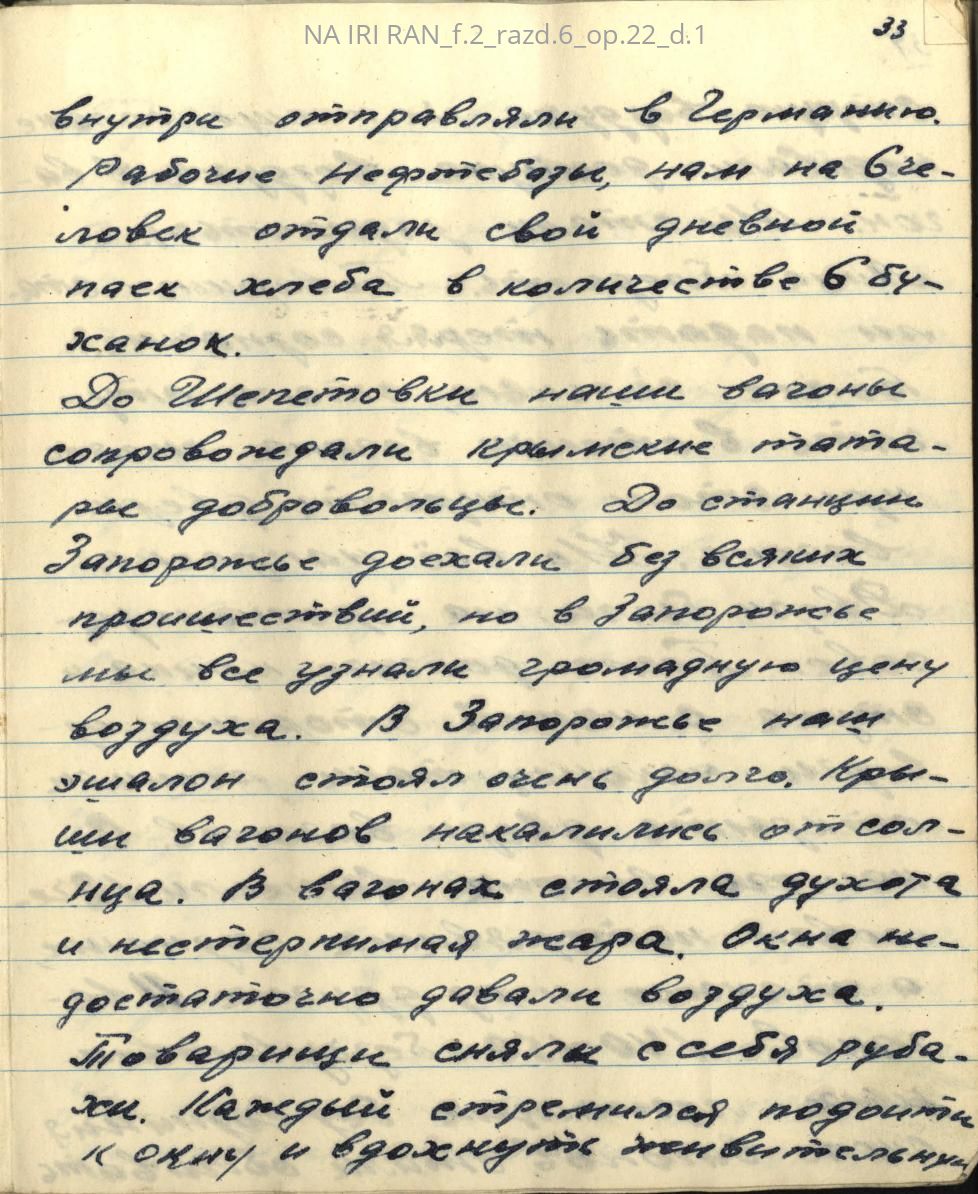 NA IRI RAN_f.2_razd.6_op.22_d.1
33
внутри отправляли в Германию.
Рабочие нефтебазы, нам на 6 че-
ловек отдали свой дневной
паек хлеба в количестве 6 бу-
ханок.
До Шепетовки наши вагоны
сопровождали крымские тата-
ры добровольцы. До станции
Запорожье доехали без всяких
проишествий, но в Запорожье
мы все узнали громадную цену
воздуха. В Запорожье наш
эшалон стоял очень долго. Кры-
ши вагонов накалились от сол-
нца. В вагонах стояла духота
и нестерпимая жара. Окна не-
достаточно давали воздуха.
Товарищи сняли с себя руба-
хи. Каждый стремился подойти
к окну и вдохнуть живительную